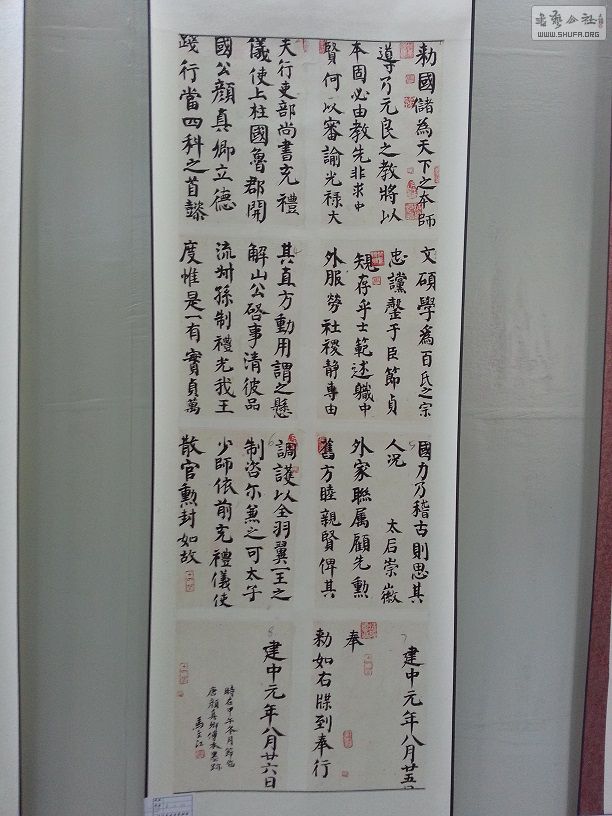 书艺公社
WWW.SHUFA.ORG
勅國儲為天下之本師
導乃元良之教將以
本固必由教先非求中
賢何以審諭光禄大
夫行吏部尚書充禮
儀使上柱國魯郡開
國公顏真卿立德
踐行當四科之首懿
文碩學爲百氏之宗
忠讜罄于臣節貞
規存乎士範述職中
外服勞社稷靜專由
其直方動用謂之懸
解山公啓事清彼品
流叔孫制禮光我王
度惟是一有實貞萬
國力乃稽古則思其
人况 太后崇徽
外家聯属顧先勲
舊方睦親賢俾其
調護以全羽翼一王之
制咨尔兼之可太子
少師依前充禮儀使
散官勲封如故
建中元年八月廿五日
奉
勅如右牒到奉行
建中元年八月廿六日
時在甲午冬月節臨
唐顏真卿傳本墨跡